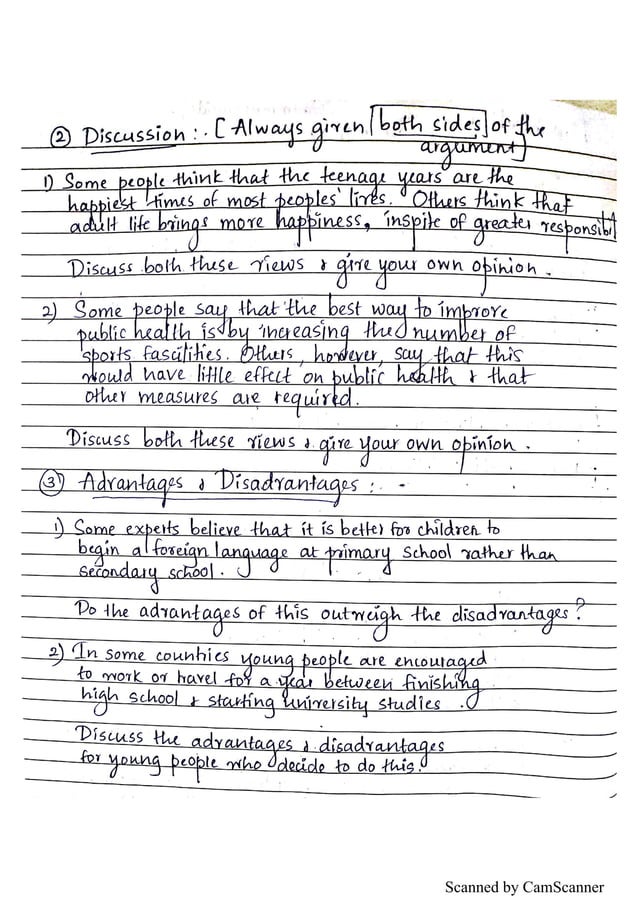 ② Discussion :. [Always given [both sides] of the
argument]
1) Some people think that the teenage years are the
happiest times of most peoples' lives. Others think that
adult life brings more happiness, inspite of greater responsibl
Discuss both these views & give your own opinion.
2) Some people say that the best way to improve
public health is by increasing the number of
sports fascilities. Others, however, say that this
would have little effect on public health & that
other measures are required.
Discuss both these views & give your own opinion.
③ Advantages & Disadvantages :. -
1) Some experts believe that it is better for children to
begin a foreign language at primary school rather than
secondary school.
Do the advantages of this outweigh the disadvantages?
2) In some countries young people are encouraged
to work or travel for a year between finishing
high school & starting university studies.
Discuss the advantages & disadvantages
for young people who decide to do this.
Scanned by CamScanner